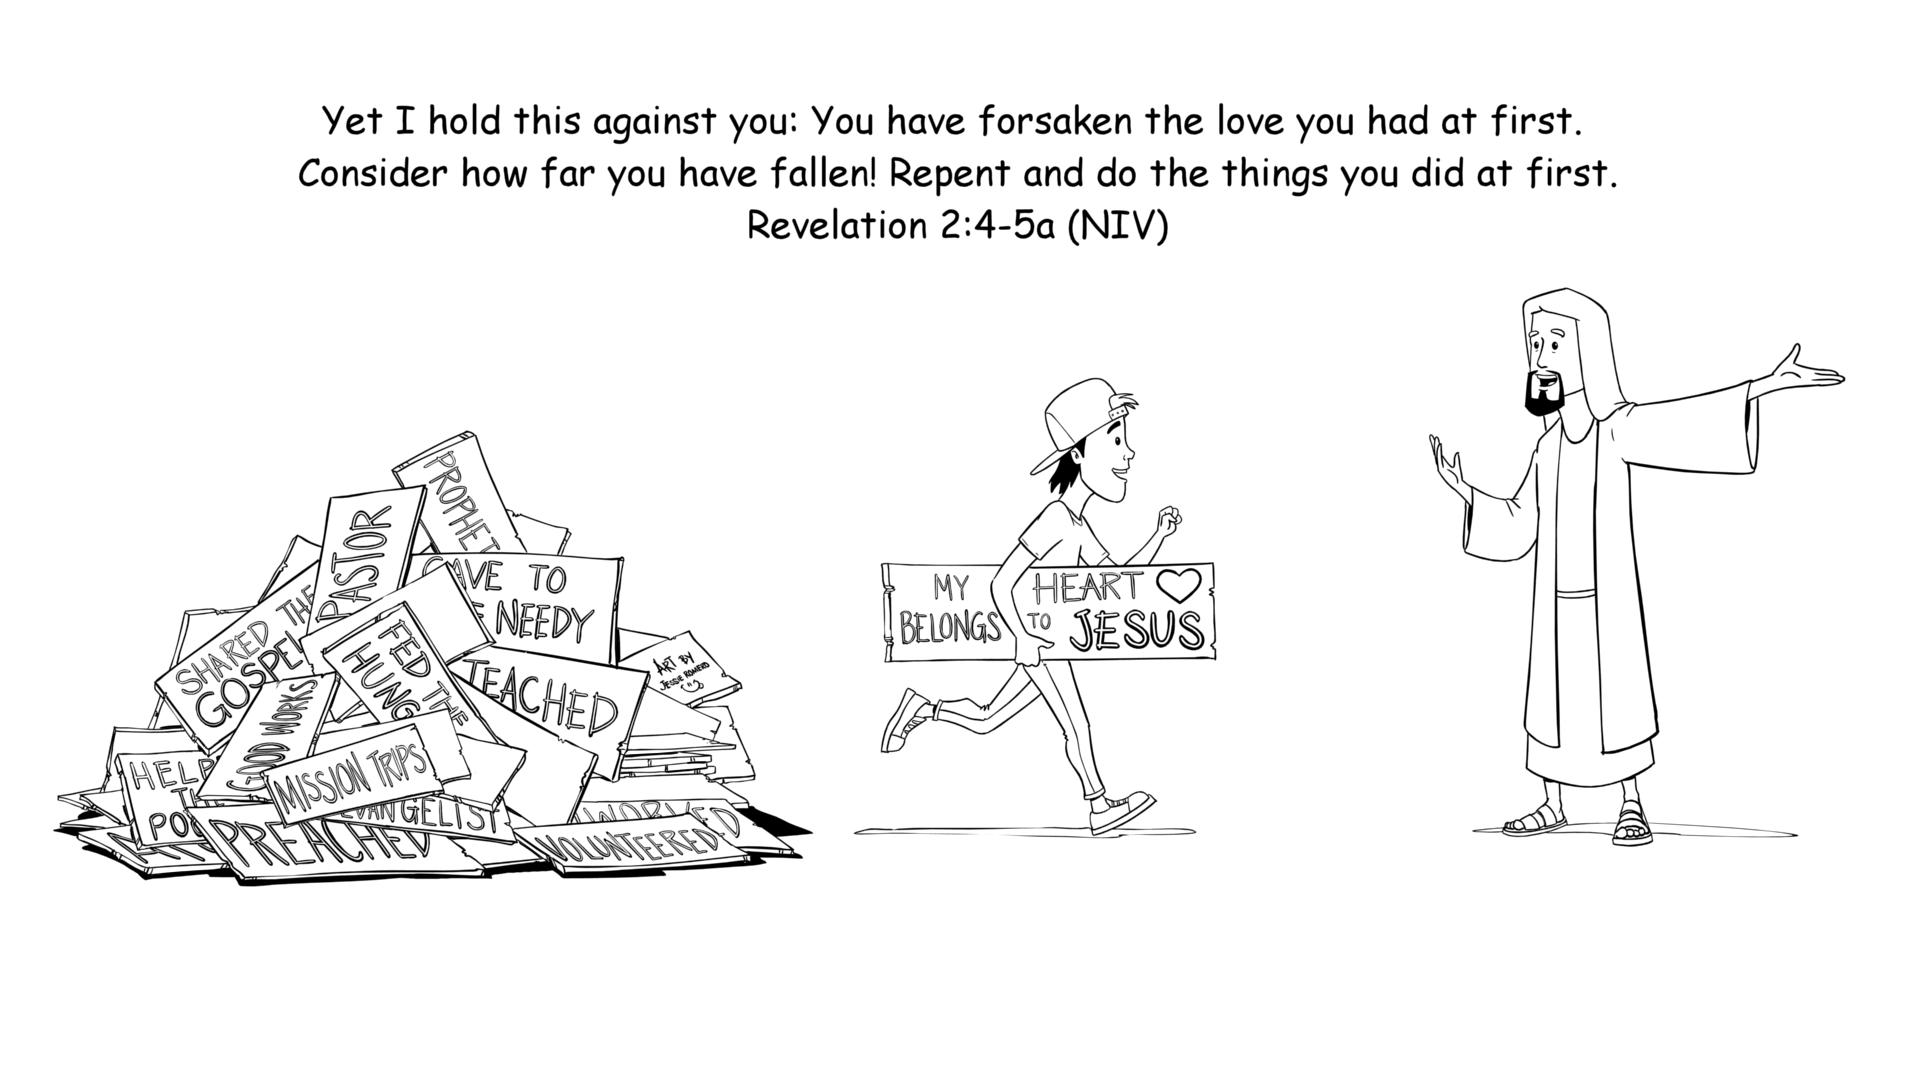 Yet I hold this against you: You have forsaken the love you had at first.
Consider how far you have fallen! Repent and do the things you did at first.
Revelation 2:4-5a (NIV)
PROPHET
PASTOR
TO
NEEDY
SHARED THE
GOSPEL
FED THE
TEACHED
ART BY
JESSIE ROMERO
GOOD WORKS
MISSION TRIPS
HELP
PREACHED
EVANGELIST
VOLUNTEERED
MY HEART
BELONGS TO JESUS